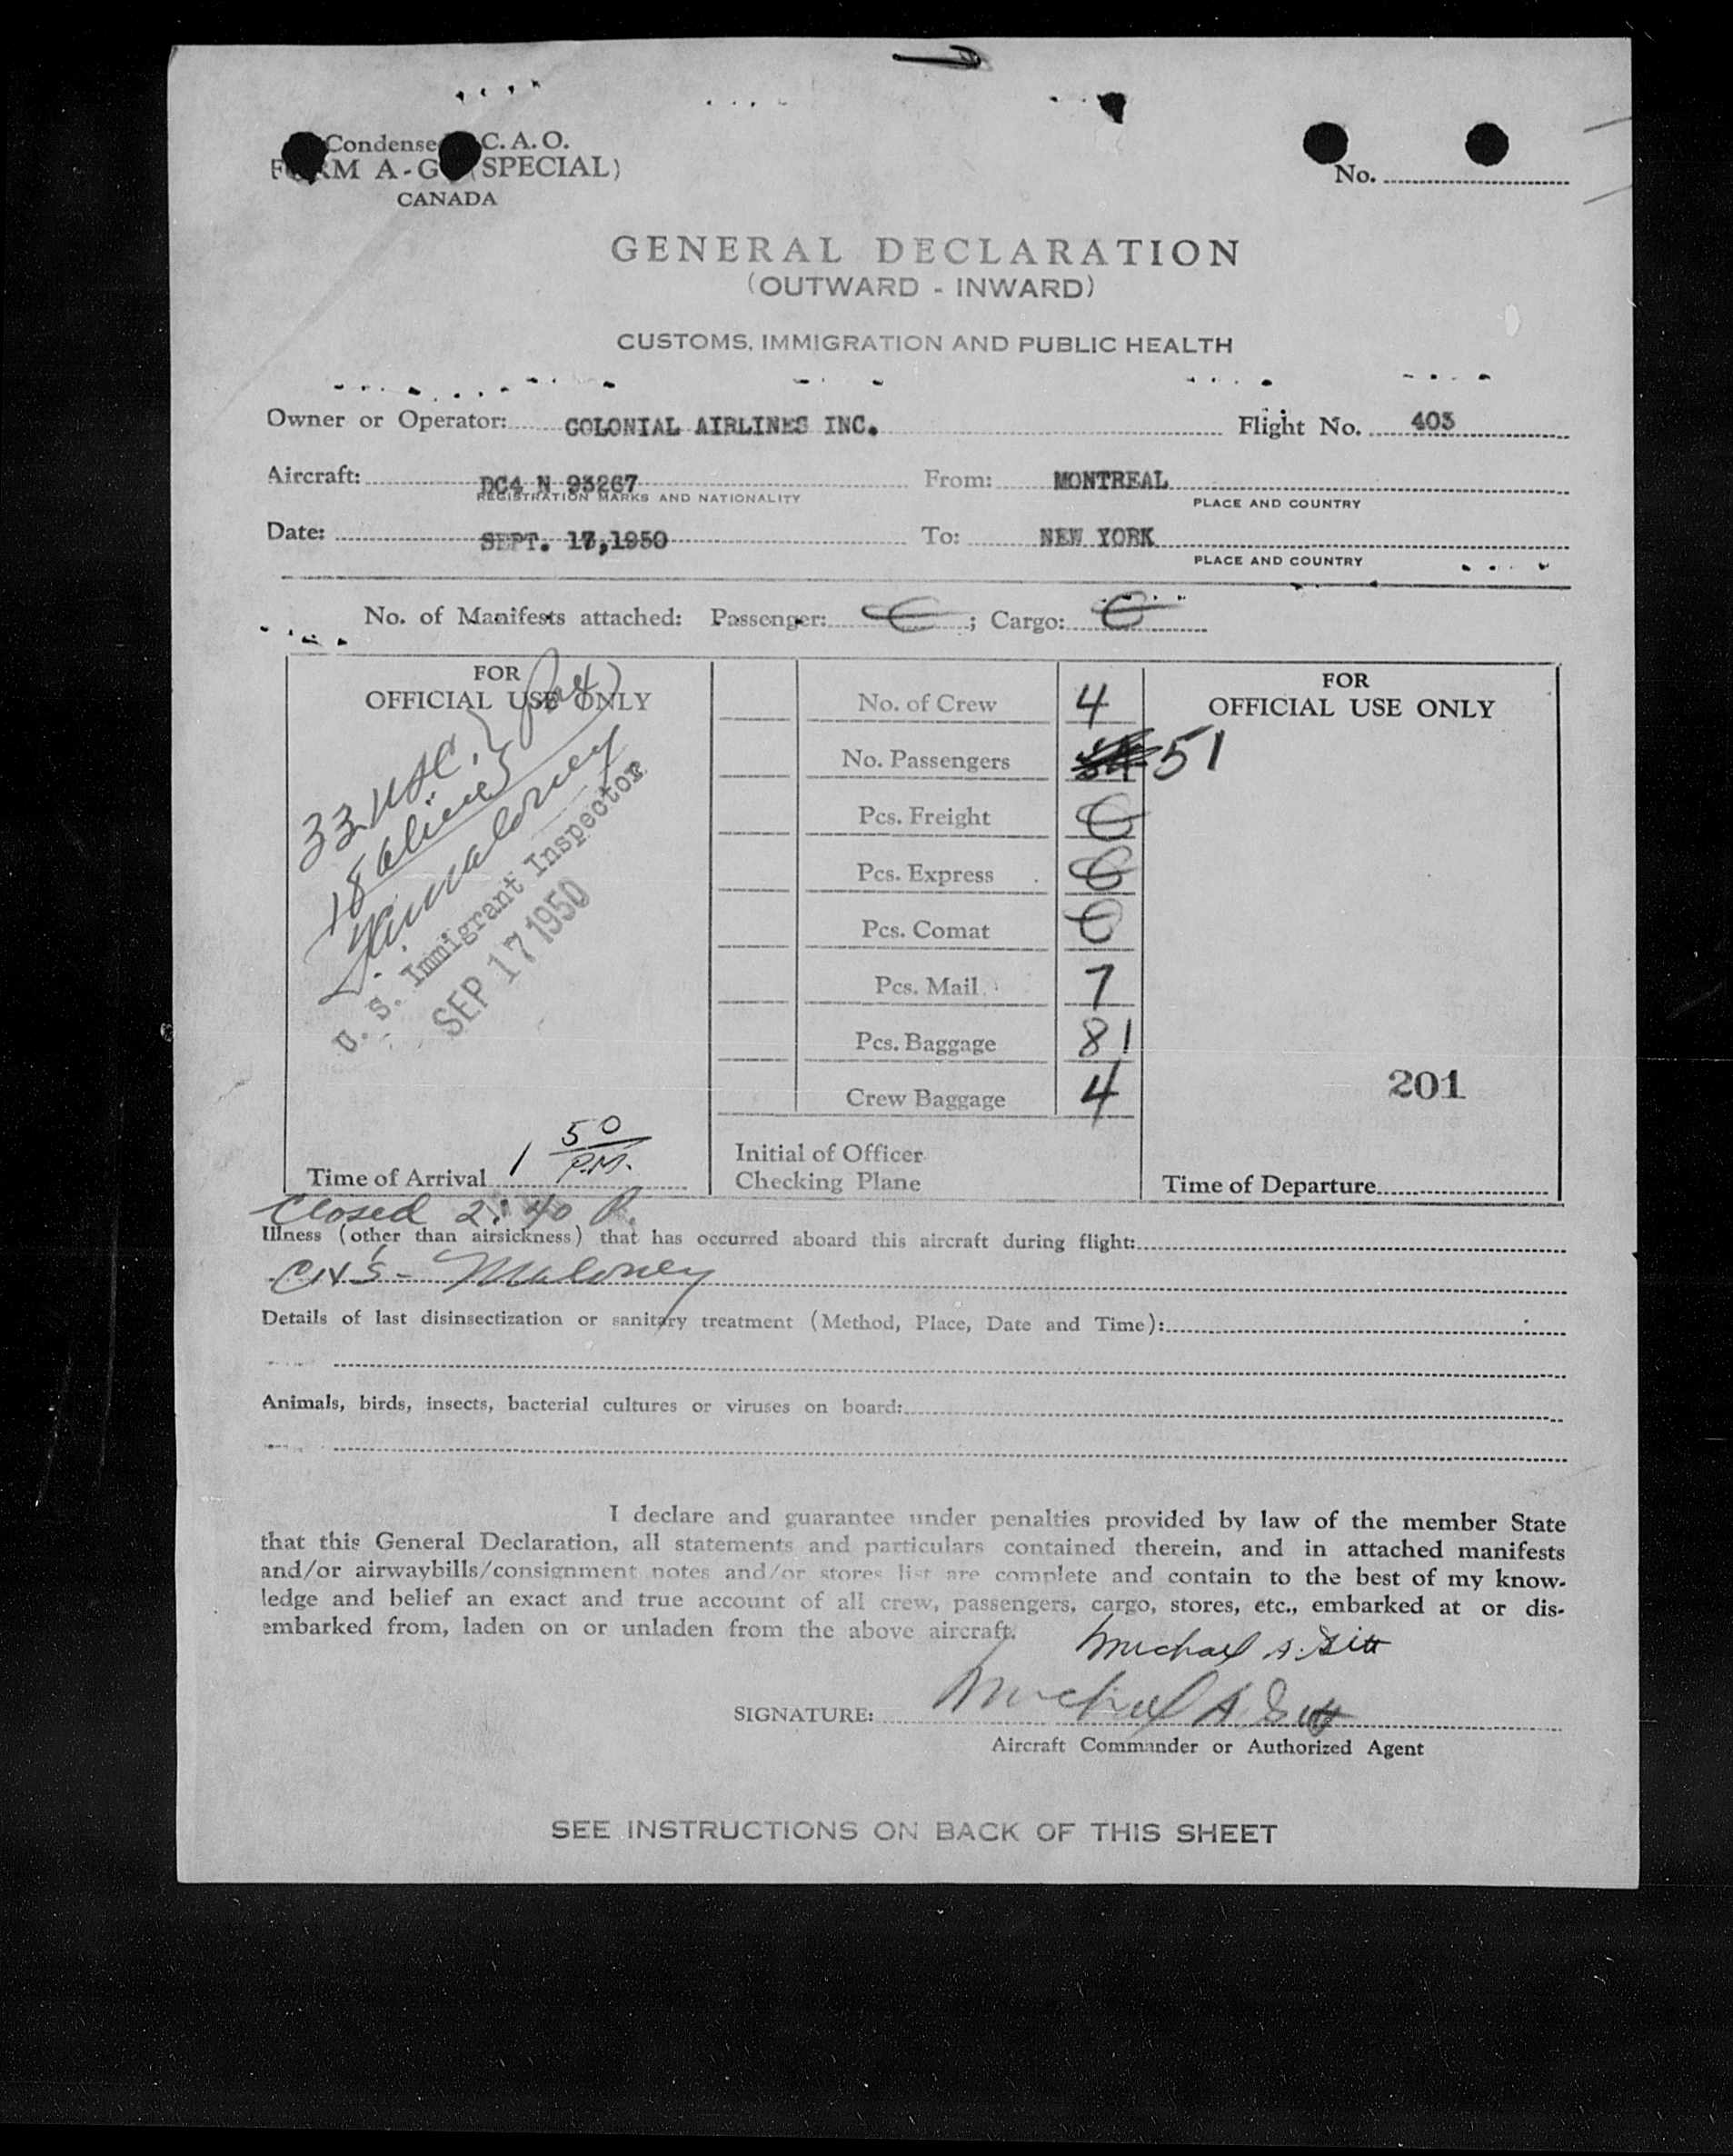 Condense C. A. O.
FORM A-G (SPECIAL)
CANADA
No.
GENERAL DECLARATION
(OUTWARD - INWARD)
CUSTOMS, IMMIGRATION AND PUBLIC HEALTH
Owner or Operator: COLONIAL AIRLINES INC. Flight No. 403
Aircraft: DC4 N 93267 From: MONTREAL
REGISTRATION MARKS AND NATIONALITY PLACE AND COUNTRY
Date: SEPT. 17,1950 To: NEW YORK
PLACE AND COUNTRY
No. of Manifests attached: Passenger: ; Cargo:
FOR
OFFICIAL USE ONLY
33 USC.
18 aliens
Maloney
U. S. Immigrant Inspector
SEP 17 1950
Time of Arrival 1 50 P.M.
No. of Crew 4
No. Passengers 51
Pcs. Freight 0
Pcs. Express 0
Pcs. Comat 0
Pcs. Mail 7
Pcs. Baggage 81
Crew Baggage 4
Initial of Officer
Checking Plane
FOR
OFFICIAL USE ONLY
201
Time of Departure
Closed 2:40 P.
Illness (other than airsickness) that has occurred aboard this aircraft during flight:
Maloney
Details of last disinsectization or sanitary treatment (Method, Place, Date and Time):
Animals, birds, insects, bacterial cultures or viruses on board:
I declare and guarantee under penalties provided by law of the member State
that this General Declaration, all statements and particulars contained therein, and in attached manifests
and/or airwaybills/consignment notes and/or stores list are complete and contain to the best of my know-
ledge and belief an exact and true account of all crew, passengers, cargo, stores, etc., embarked at or dis-
embarked from, laden on or unladen from the above aircraft.
Michael A.
SIGNATURE: Michael A.
Aircraft Commander or Authorized Agent
SEE INSTRUCTIONS ON BACK OF THIS SHEET